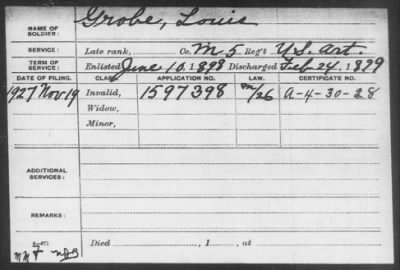 NAME OF SOLDIER: Grobe, Louis
SERVICE: Late rank, Co. M 5 Reg't U.S. Art.
TERM OF SERVICE: Enlisted June 10, 1898 Discharged Feb 24, 1899
DATE OF FILING. CLASS. APPLICATION NO. LAW. CERTIFICATE NO.
1927 Nov 19 Invalid, 1597398 m/26 A-4-30-28
Widow,
Minor,
ADDITIONAL SERVICES:
REMARKS:
Died , 1 , at